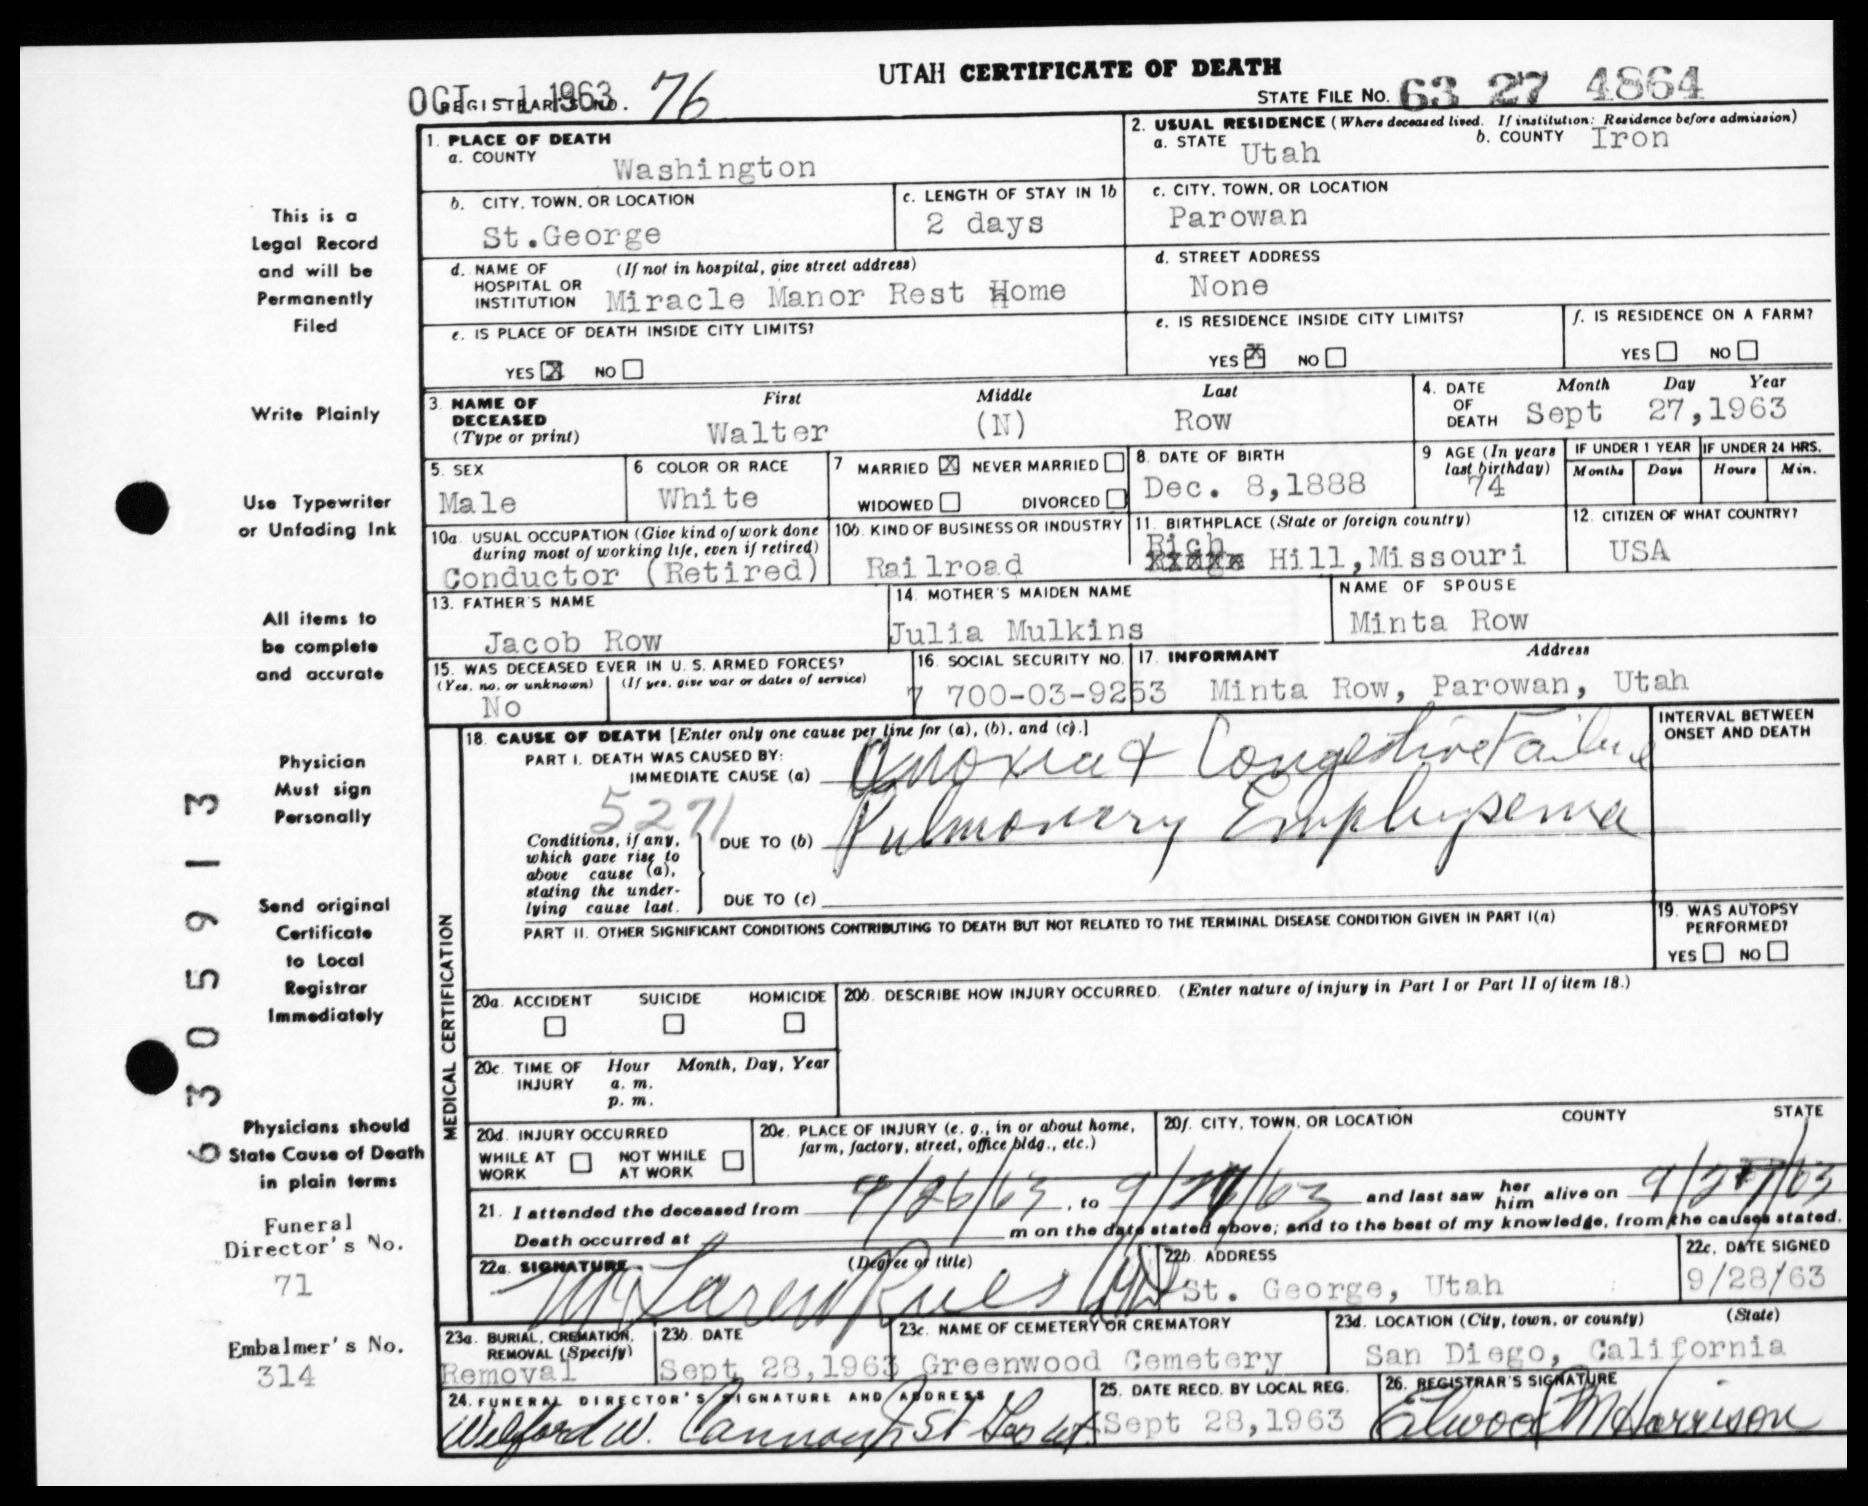 UTAH CERTIFICATE OF DEATH
OCT - 1 1963
REGISTRAR'S NO. 76
STATE FILE NO. 63 27 4864
1. PLACE OF DEATH
a. COUNTY
Washington
2. USUAL RESIDENCE (Where deceased lived. If institution: Residence before admission)
a. STATE Utah
b. COUNTY Iron
b. CITY, TOWN, OR LOCATION
St.George
c. LENGTH OF STAY IN 1b
2 days
c. CITY, TOWN, OR LOCATION
Parowan
d. NAME OF HOSPITAL OR INSTITUTION
(If not in hospital, give street address)
Miracle Manor Rest Home
d. STREET ADDRESS
None
e. IS PLACE OF DEATH INSIDE CITY LIMITS?
YES X NO
e. IS RESIDENCE INSIDE CITY LIMITS?
YES X NO
f. IS RESIDENCE ON A FARM?
YES NO
3. NAME OF DECEASED (Type or print)
First Middle Last
Walter (N) Row
4. DATE OF DEATH
Month Day Year
Sept 27,1963
5. SEX
Male
6. COLOR OR RACE
White
7 MARRIED X NEVER MARRIED
WIDOWED DIVORCED
8. DATE OF BIRTH
Dec. 8,1888
9 AGE (In years last birthday)
74
IF UNDER 1 YEAR
Months Days
IF UNDER 24 HRS.
Hours Min.
10a. USUAL OCCUPATION (Give kind of work done during most of working life, even if retired)
Conductor (Retired)
10b. KIND OF BUSINESS OR INDUSTRY
Railroad
11. BIRTHPLACE (State or foreign country)
Rich
Hill,Missouri
12. CITIZEN OF WHAT COUNTRY?
USA
13. FATHER'S NAME
Jacob Row
14. MOTHER'S MAIDEN NAME
Julia Mulkins
NAME OF SPOUSE
Minta Row
15. WAS DECEASED EVER IN U. S. ARMED FORCES?
(Yes, no, or unknown) (If yes, give war or dates of service)
No
16. SOCIAL SECURITY NO.
7 700-03-9253
17. INFORMANT Address
Minta Row, Parowan, Utah
MEDICAL CERTIFICATION
18. CAUSE OF DEATH [Enter only one cause per line for (a), (b), and (c).]
PART I. DEATH WAS CAUSED BY:
IMMEDIATE CAUSE (a) Anoxia + Congestive Failure
5271
Conditions, if any, which gave rise to above cause (a), stating the underlying cause last.
DUE TO (b) Pulmonary Emphysema
DUE TO (c)
INTERVAL BETWEEN ONSET AND DEATH
PART II. OTHER SIGNIFICANT CONDITIONS CONTRIBUTING TO DEATH BUT NOT RELATED TO THE TERMINAL DISEASE CONDITION GIVEN IN PART I(a)
19. WAS AUTOPSY PERFORMED?
YES NO
20a. ACCIDENT SUICIDE HOMICIDE
20b. DESCRIBE HOW INJURY OCCURRED. (Enter nature of injury in Part I or Part II of item 18.)
20c. TIME OF INJURY
Hour Month, Day, Year
a. m.
p. m.
20d. INJURY OCCURRED
WHILE AT WORK NOT WHILE AT WORK
20e. PLACE OF INJURY (e. g., in or about home, farm, factory, street, office bldg., etc.)
20f. CITY, TOWN, OR LOCATION COUNTY STATE
21. I attended the deceased from 9/26/63, to 9/27/63 and last saw her him alive on 9/27/63
Death occurred at m on the date stated above; and to the best of my knowledge, from the causes stated.
22a. SIGNATURE (Degree or title)
McLaren Ruesch MD
22b. ADDRESS
St. George, Utah
22c. DATE SIGNED
9/28/63
23a. BURIAL, CREMATION, REMOVAL (Specify)
Removal
23b. DATE
Sept 28,1963
23c. NAME OF CEMETERY OR CREMATORY
Greenwood Cemetery
23d. LOCATION (City, town, or county) (State)
San Diego, California
24. FUNERAL DIRECTOR'S SIGNATURE AND ADDRESS
Wilford W. Cannon St Geo Ut.
25. DATE RECD. BY LOCAL REG.
Sept 28,1963
26. REGISTRAR'S SIGNATURE
Elwood M Harrison
This is a
Legal Record
and will be
Permanently
Filed
Write Plainly
Use Typewriter
or Unfading Ink
All items to
be complete
and accurate
Physician
Must sign
Personally
Send original
Certificate
to Local
Registrar
Immediately
Physicians should
State Cause of Death
in plain terms
Funeral
Director's No.
71
Embalmer's No.
314
6305913